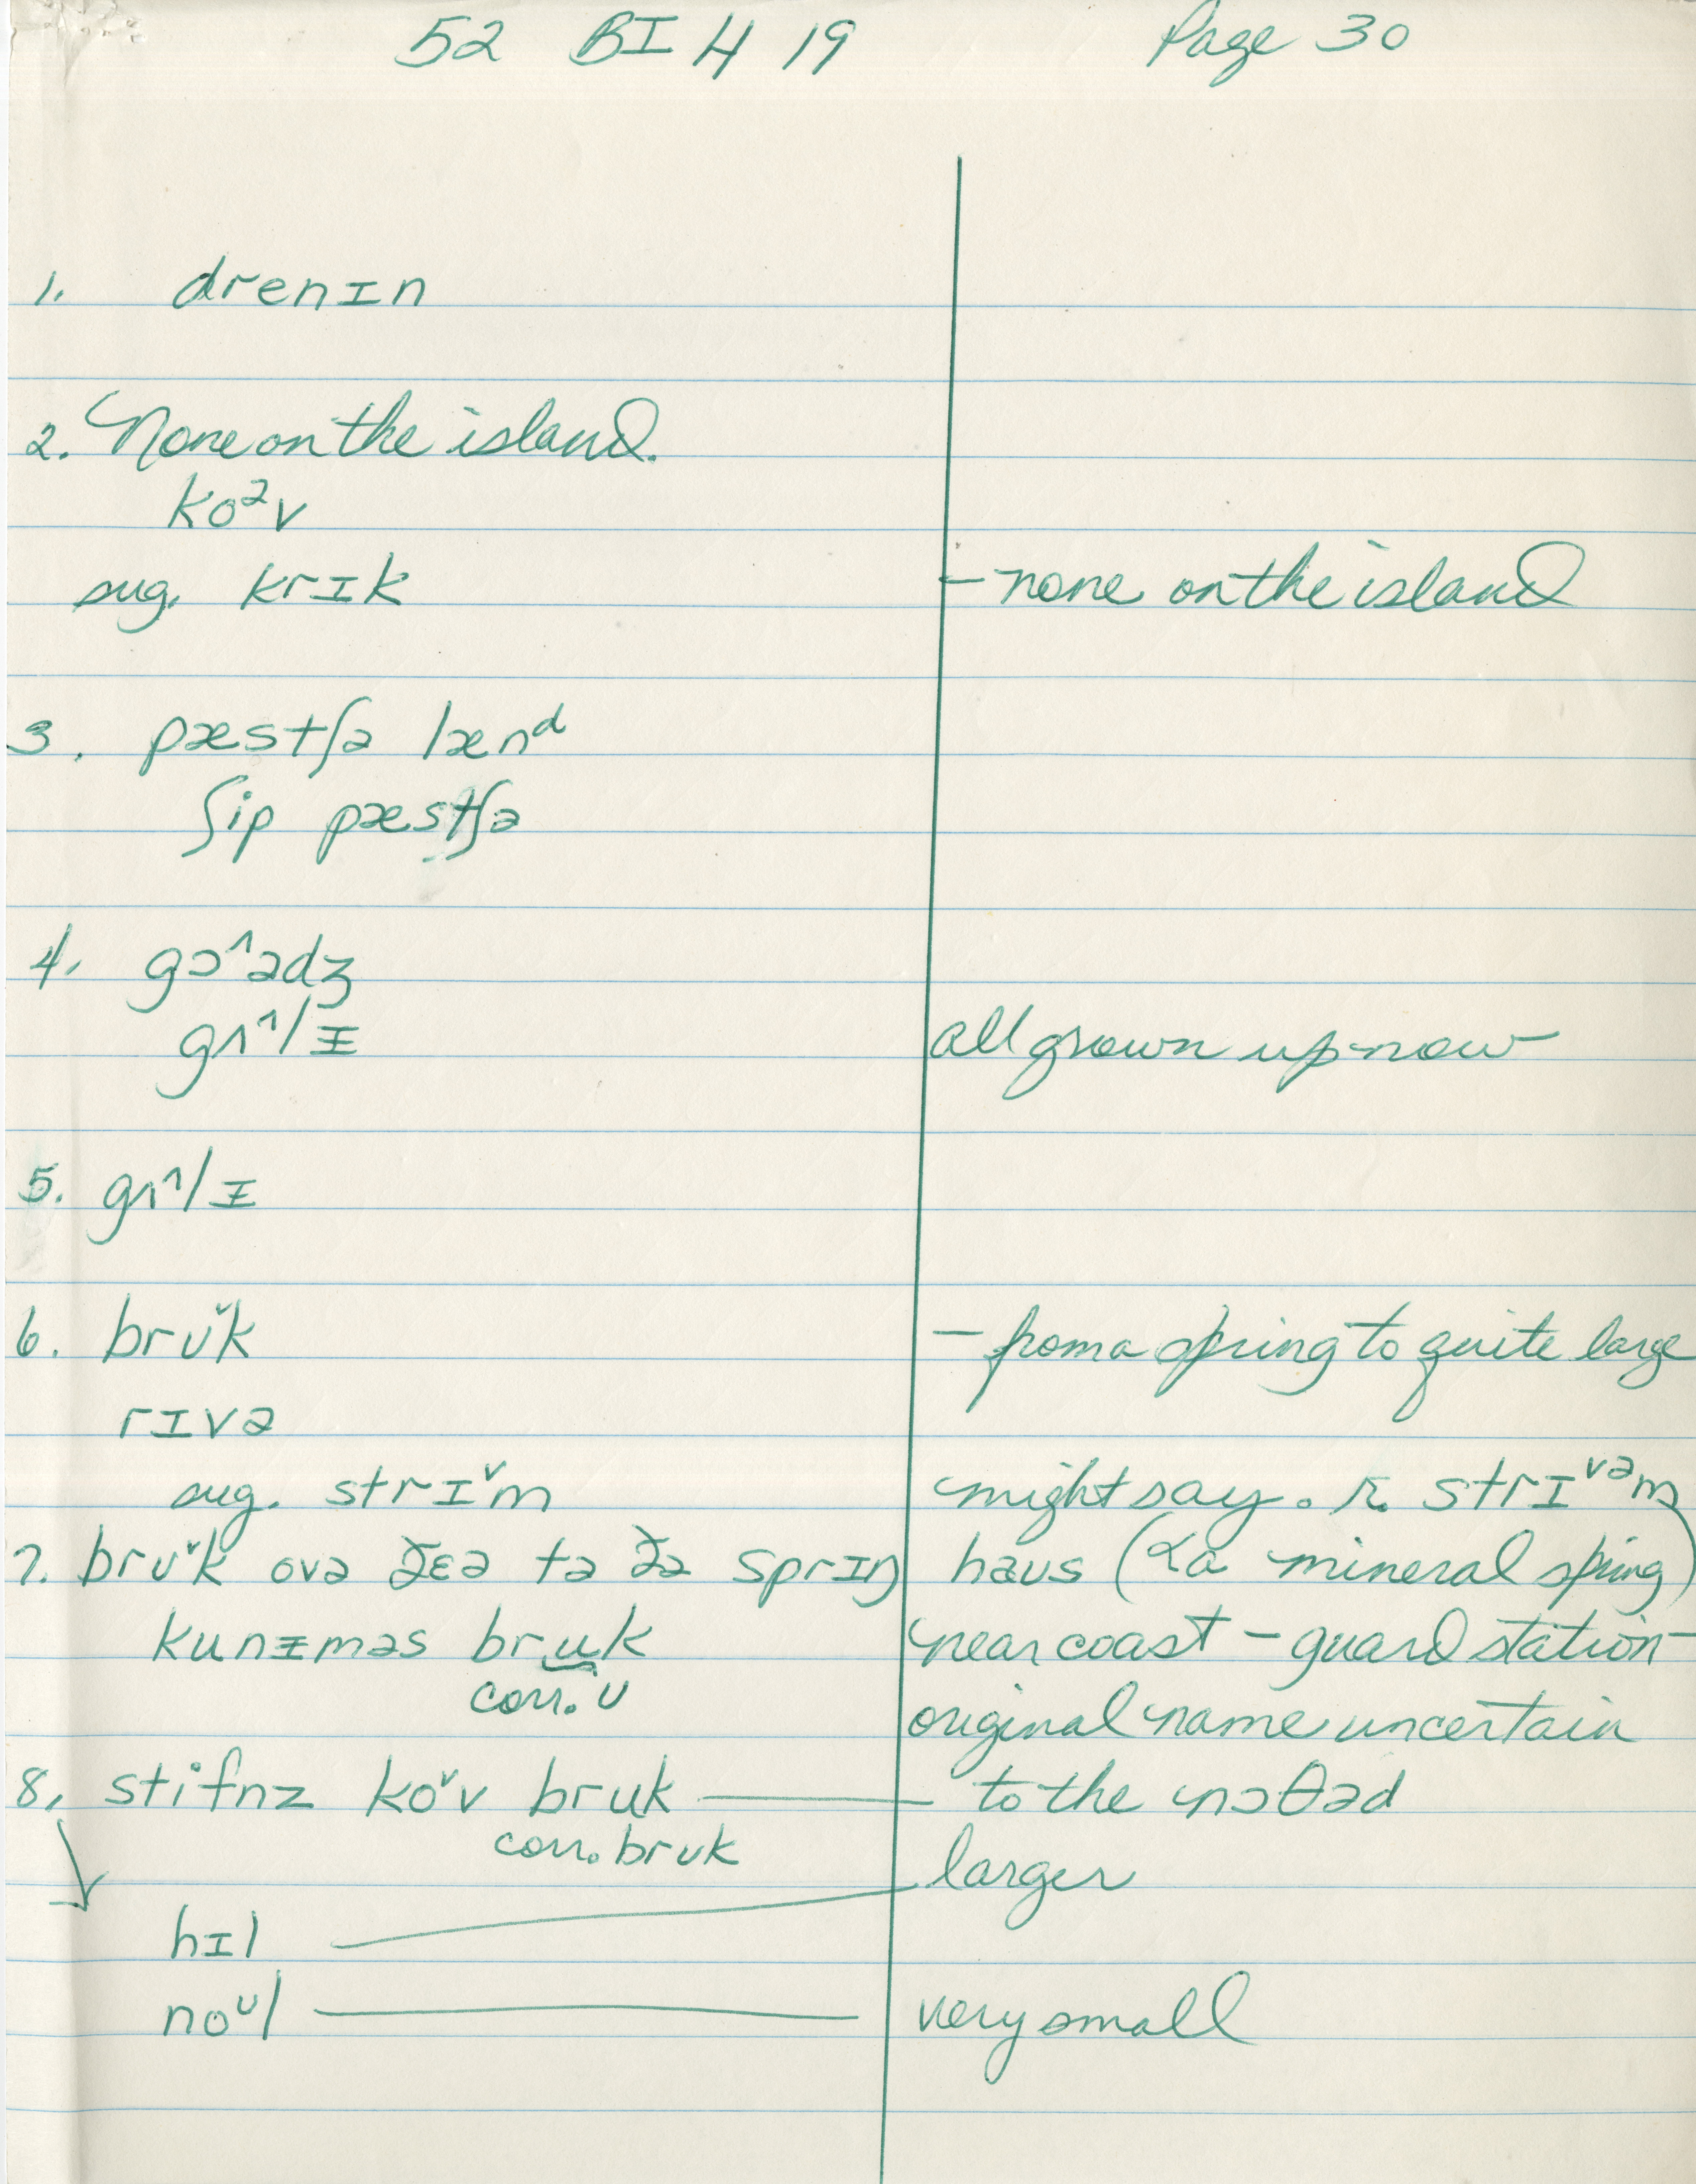 52 BI H 19 Page 30
1. drenɪn
2. None on the island.
koᵊv
sug. krɪk - none on the island
3. pæstʃə lænᵈ
ʃip pæstʃə
4. gɔ^ədʒ
gʌ^lɪ all grown up now
5. gʌ^lɪ
6. brʊˇk - from a spring to quite large
rɪvə
sug. strɪˇm might say. r. strɪᵛᵊm
7. brʊˇk ovə ðɛə tə ðə sprɪŋ haus (<a mineral spring)
kunɪməs bruk near coast-guard station-
corr. ʊ original name uncertain
8. stifnz koˇv bruk — to the nɔθəd
corr. brʊk
larger
hɪl
noᶷl — very small